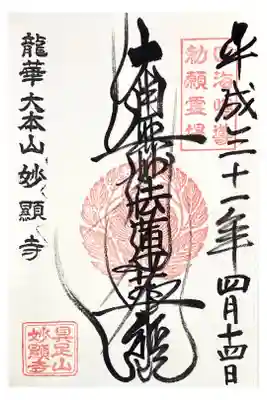 四海唱導
勅願霊場
平成三十一年四月十四日
南無妙法蓮華経
龍華大本山妙顯寺
具足山
妙顯寺